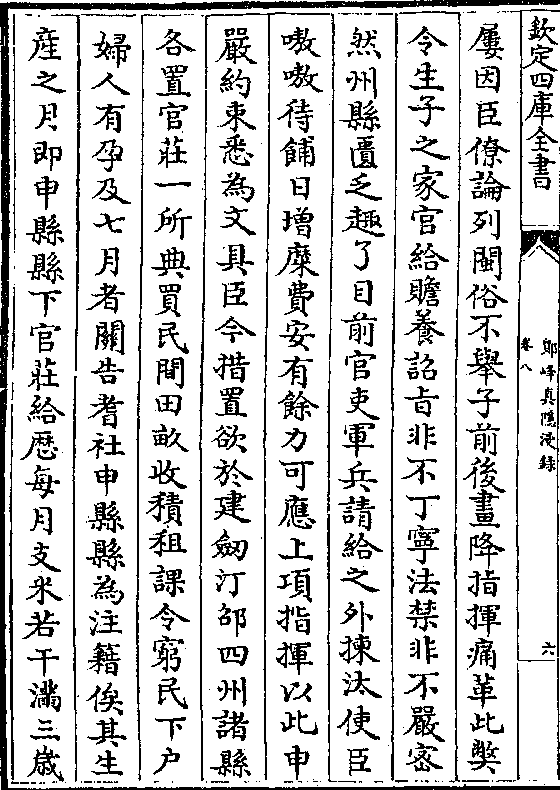 欽定四庫全書
鄮峰真隱漫録
卷八
六
屢因臣僚論列閩俗不舉子前後畫降指揮痛革此弊
令生子之家官給贍養詔㫖非不丁寧法禁非不嚴宻
然州縣匱乏趣了目前官吏軍兵請給之外揀汰使臣
嗷嗷待餔日增糜費安有餘力可應上項指揮以此申
嚴約束悉為文具臣今措置欲於建劒汀邵四州諸縣
各置官莊一所典買民間田畝收積租課令窮民下户
婦人有孕及七月者闗告耆社申縣縣為注籍俟其生
産之月即申縣縣下官莊給厯每月支米若干滿三歳